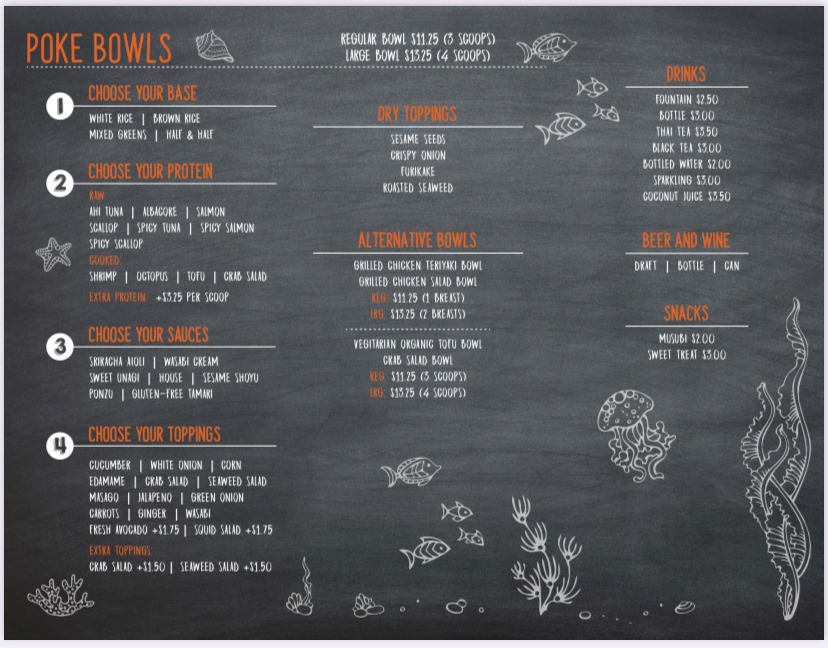 POKE BOWLS
REGULAR BOWL $11.25 (3 SCOOPS)
LARGE BOWL $13.25 (4 SCOOPS)
1 CHOOSE YOUR BASE
WHITE RICE | BROWN RICE
MIXED GREENS | HALF & HALF
2 CHOOSE YOUR PROTEIN
RAW:
AHI TUNA | ALBACORE | SALMON
SCALLOP | SPICY TUNA | SPICY SALMON
SPICY SCALLOP
COOKED:
SHRIMP | OCTOPUS | TOFU | CRAB SALAD
EXTRA PROTEIN: +$3.25 PER SCOOP
3 CHOOSE YOUR SAUCES
SRIRACHA AIOLI | WASABI CREAM
SWEET UNAGI | HOUSE | SESAME SHOYU
PONZU | GLUTEN-FREE TAMARI
4 CHOOSE YOUR TOPPINGS
CUCUMBER | WHITE ONION | CORN
EDAMAME | CRAB SALAD | SEAWEED SALAD
MASAGO | JALAPENO | GREEN ONION
CARROTS | GINGER | WASABI
FRESH AVOCADO +$1.75 | SQUID SALAD +$1.75
EXTRA TOPPINGS:
CRAB SALAD +$1.50 | SEAWEED SALAD +$1.50
DRY TOPPINGS
SESAME SEEDS
CRISPY ONION
FURIKAKE
ROASTED SEAWEED
ALTERNATIVE BOWLS
GRILLED CHICKEN TERIYAKI BOWL
GRILLED CHICKEN SALAD BOWL
REG: $11.25 (1 BREAST)
LRG: $13.25 (2 BREASTS)
VEGITARIAN ORGANIC TOFU BOWL
CRAB SALAD BOWL
REG: $11.25 (3 SCOOPS)
LRG: $13.25 (4 SCOOPS)
DRINKS
FOUNTAIN $2.50
BOTTLE $3.00
THAI TEA $3.50
BLACK TEA $3.00
BOTTLED WATER $2.00
SPARKLING $3.00
COCONUT JUICE $3.50
BEER AND WINE
DRAFT | BOTTLE | CAN
SNACKS
MUSUBI $2.00
SWEET TREAT $3.00